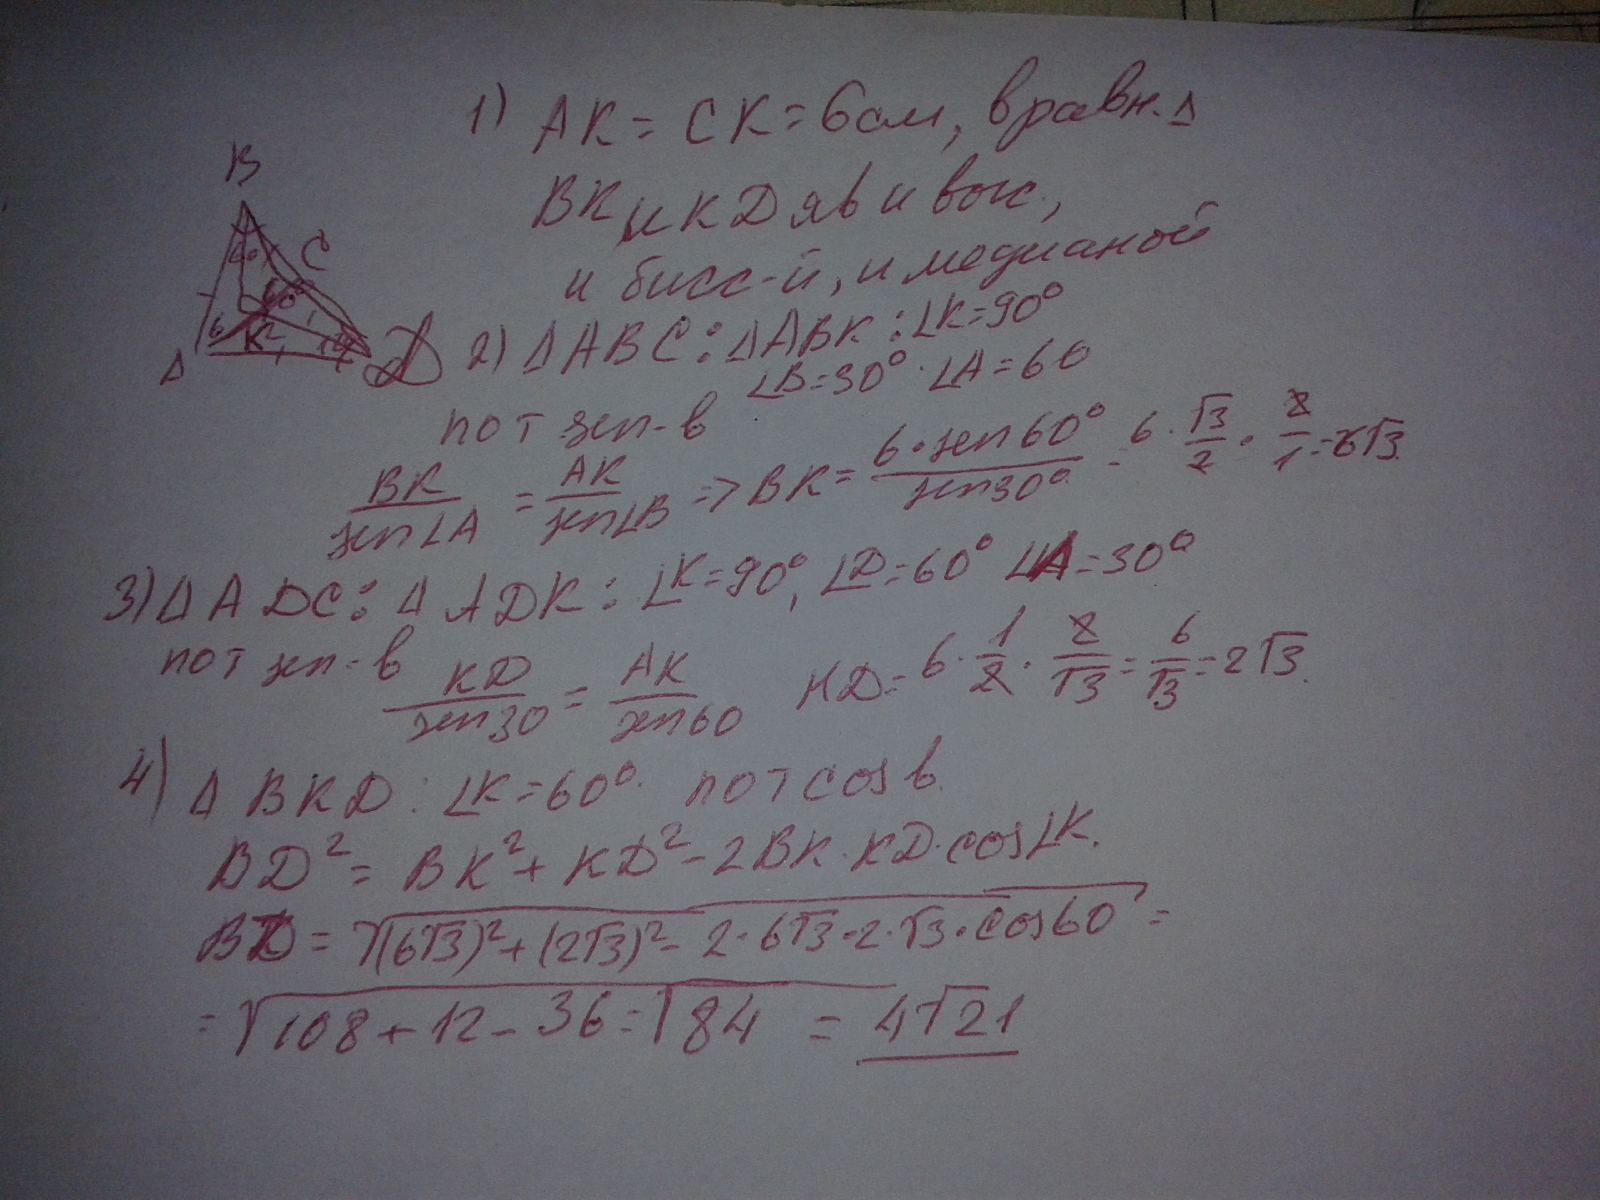 1) AK = CK = 6см, в равн. Δ
BK и KD яв и выс.,
и бисс-й, и медианой
B
C
A
D
K
6
2) ΔABC: ΔABK: ∠K=90°
∠B=30° ∠A=60
по т sin-в
BK/sin∠A = AK/sin∠B => BK = 6·sin60°/sin30° = 6·√3/2·2/1=6√3.
3) ΔADC: ΔADK: ∠K=90°, ∠D=60° ∠A=30°
по т sin-в KD/sin30 = AK/sin60 KD=6·1/2·2/√3=6/√3=2√3.
4) ΔBKD: ∠K=60°. по т cos в.
BD² = BK² + KD² - 2BK·KD·cos∠K.
BD = √(6√3)²+(2√3)²-2·6√3·2·√3·cos60 =
= √108+12-36=√84 = 4√21